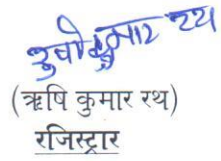 ऋषि कुमार रथ
(ऋषि कुमार रथ)
रजिस्ट्रार